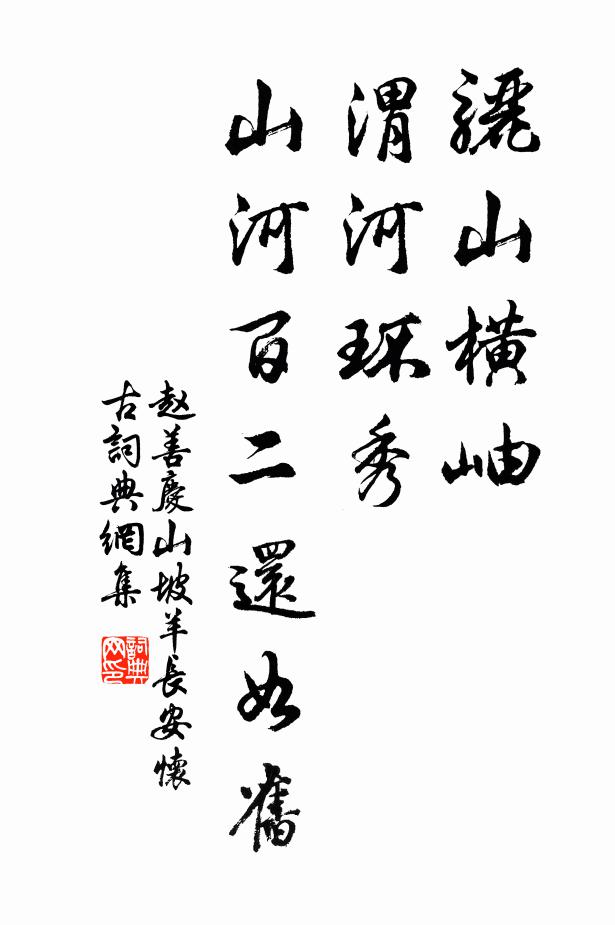 驪山橫岫
渭河环秀
山河百二還如舊
赵善慶山坡羊長安懷
古詞典網集
詞典
网印